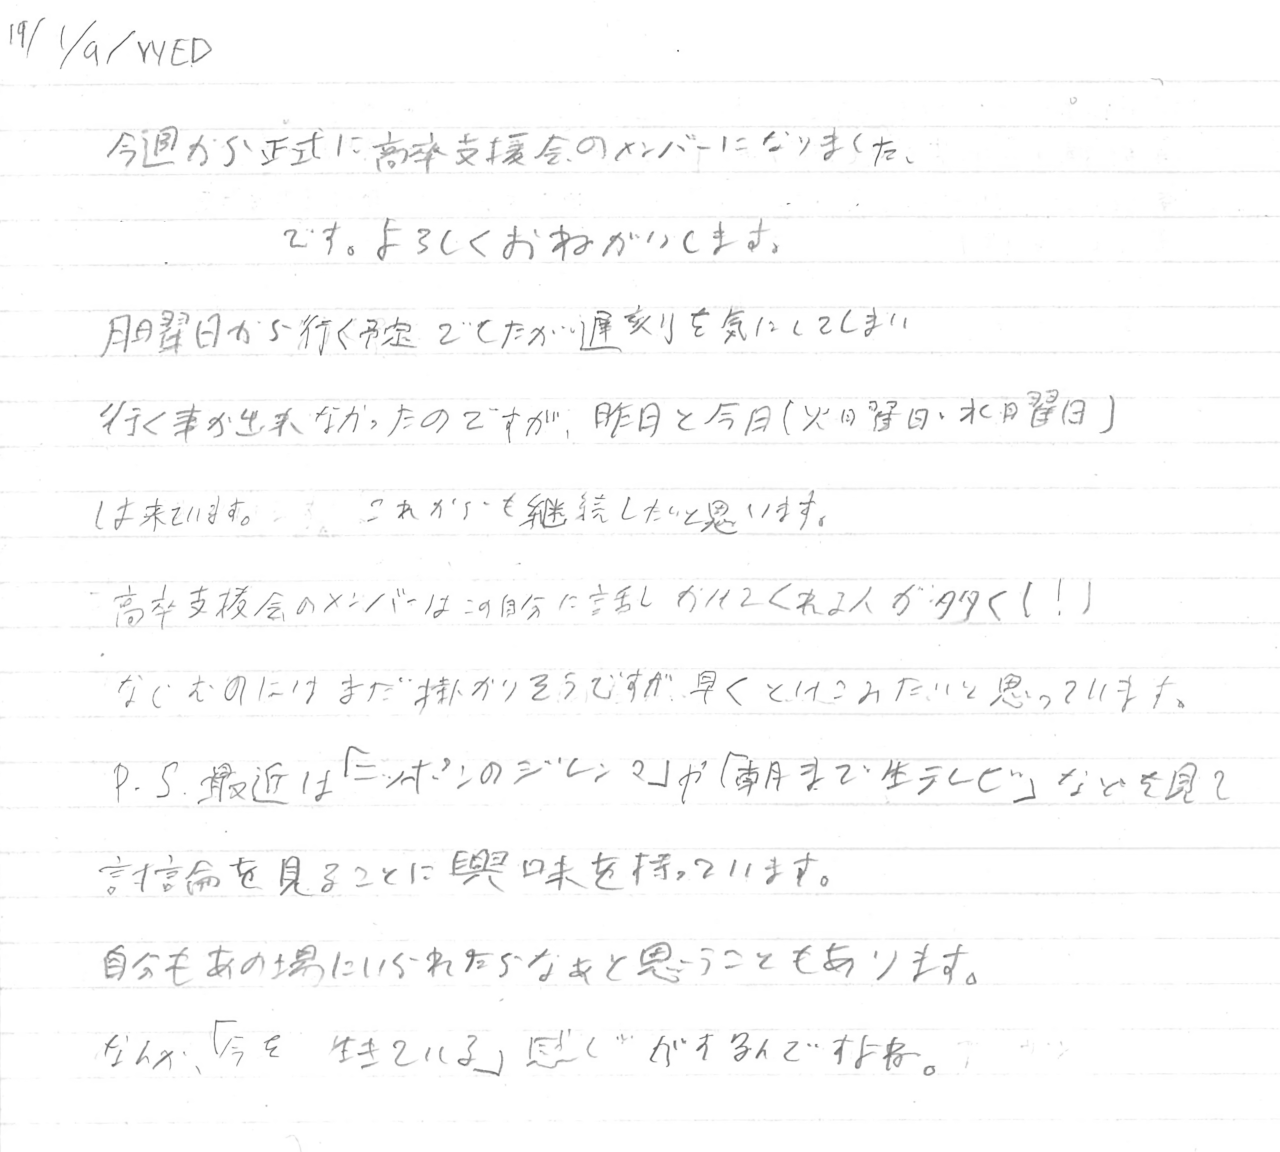 19/ 1/9/WED
今週から正式に高卒支援会のメンバーになりました、
です。よろしくおねがいします。
月曜日から行く予定でしたが遅刻を気にしてしまい
行く事が出来なかったのですが、昨日と今日(火曜日・水曜日)
は来ています。 これからも継続したいと思います。
高卒支援会のメンバーはこの自分に話しかけてくれる人が多く(!)
なじむのにはまだ掛かりそうですが早くとけこみたいと思っています。
P.S.最近は「ニッポンのジレンマ」や「朝まで生テレビ」などを見て
討論を見ることに興味を持っています。
自分もあの場にいられたらなぁと思うこともあります。
なんか、「今を 生きている」感じがするんですよね。